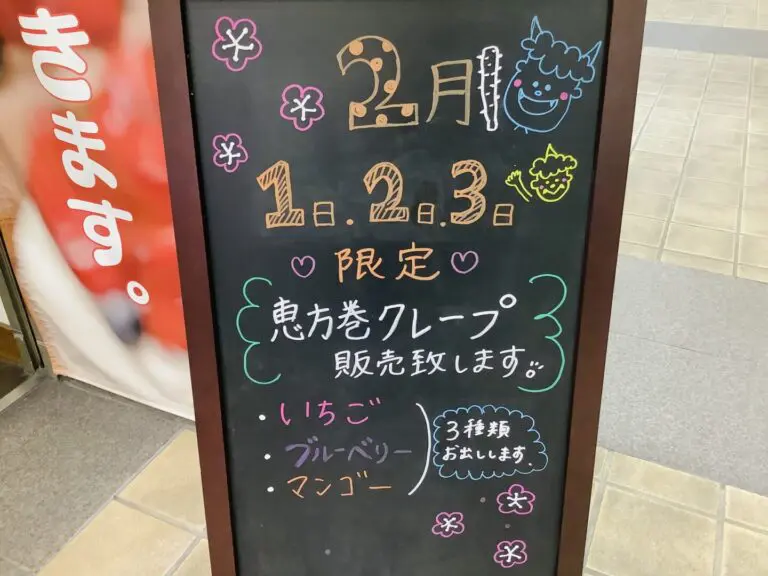 きます。
2月
1日.2日.3日
限定
恵方巻クレープ
販売致します。
・いちご
・ブルーベリー
・マンゴー
3種類
お出しします。